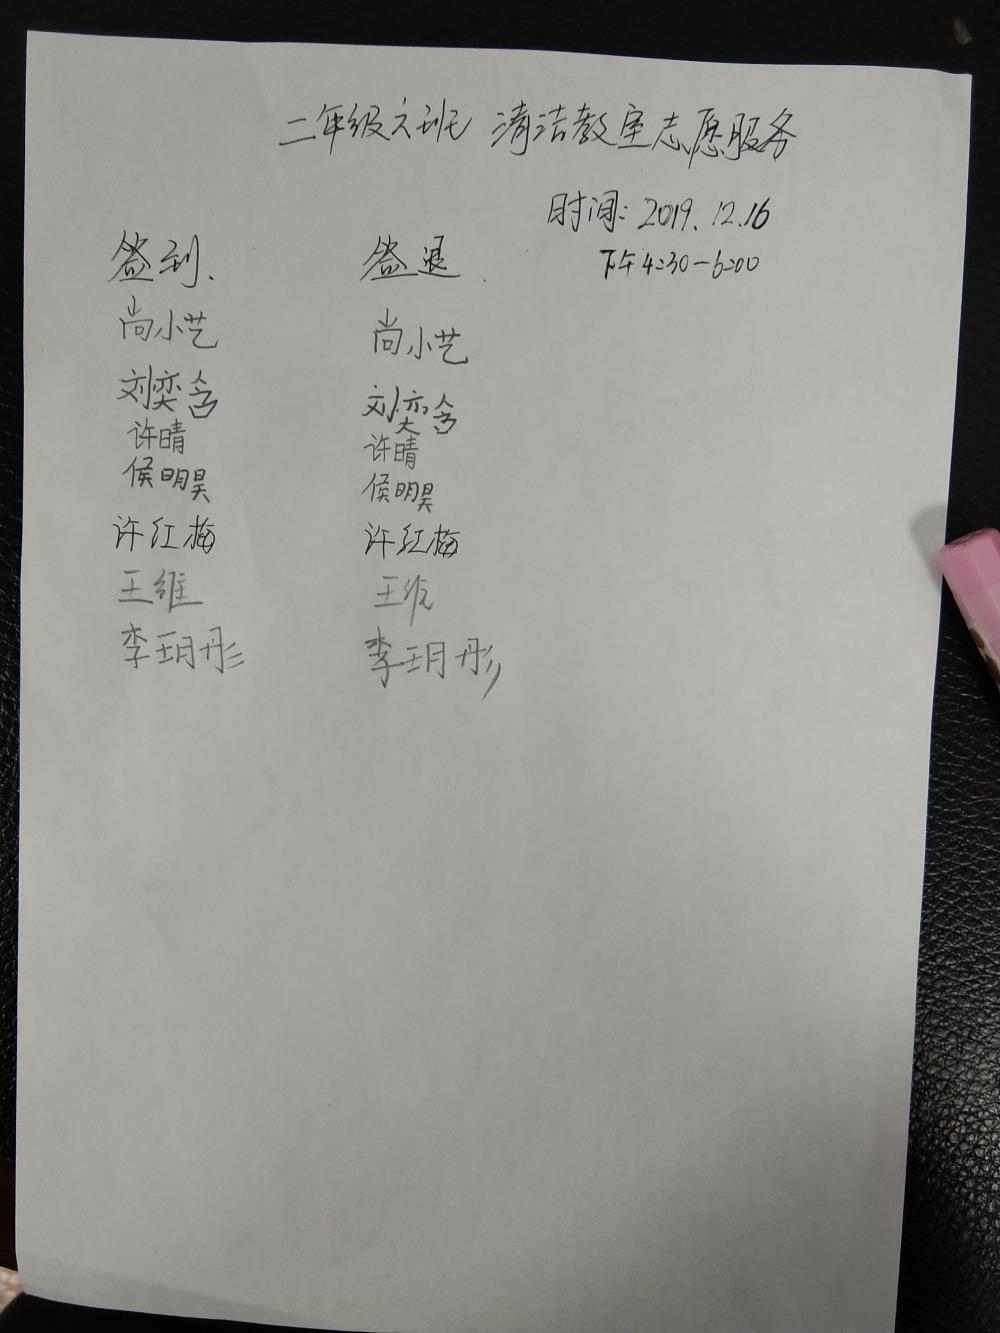 二年级六班 清洁教室志愿服务
时间: 2019.12.16
下午4:30-6:00
签到. 签退.
尚小艺 尚小艺
刘奕含 刘奕含
许晴 许晴
侯明昊 侯明昊
许红梅 许红梅
王维 王
李玥彤 李玥彤